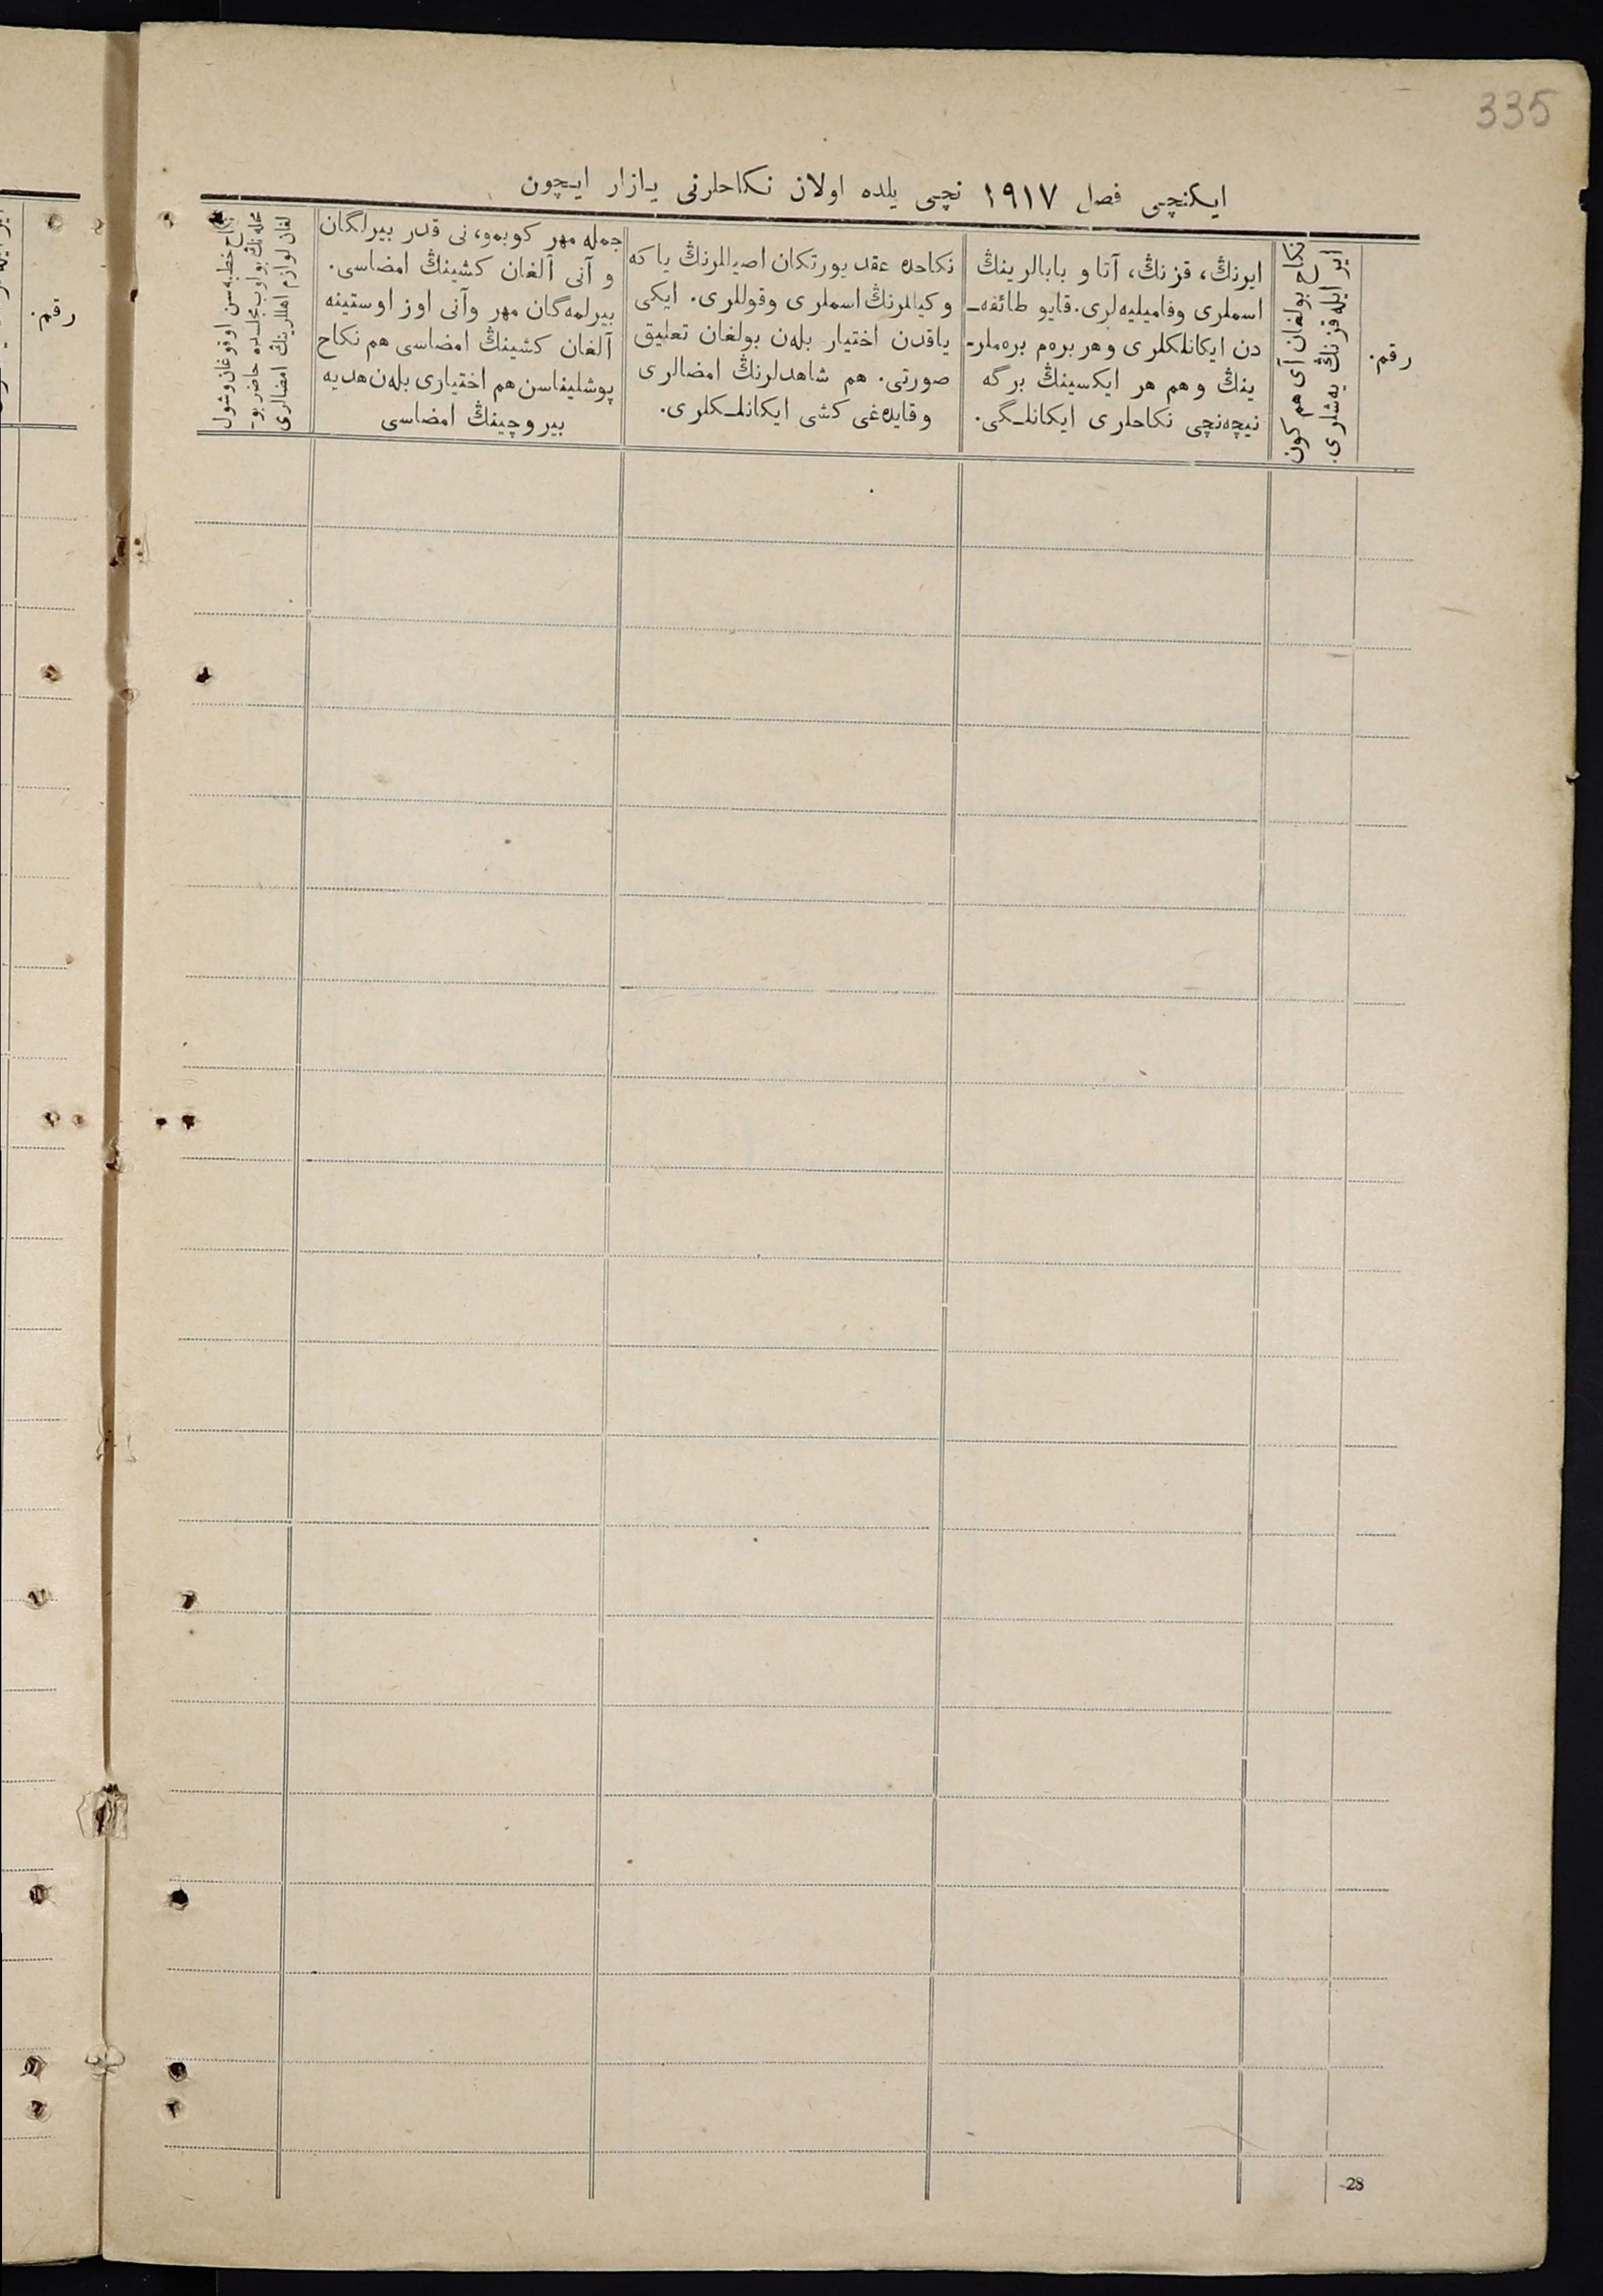 335
ایکنچی فصل ۱۹۱۷ نچی یلده اولان نکاحلرنی یازار ایچون
رقم.
ایر ایله قزنڭ یه‌شلری.
نکاح بولغان آی هم کون
ایرنڭ، قزنڭ، آتا و بابالرینڭ
اسملری وفامیلیه‌لری. قایو طائفه‌ـ
دن ایکانلکلری وهر بره‌م بره‌ملرـ
ینڭ وهم هر ایکسینڭ برگه
نیچه‌نچی نکاحلری ایکانلـگی.
نکاحده عقد یورتکان اصیللرنڭ یا که
وکیللرنڭ اسملری وقوللری. ایکی
یاقدن اختیار بله‌ن بولغان تعلیق
صورتی. هم شاهدلرنڭ امضالری
وقایده‌غی کشی ایکانلـکلری.
جمله مهر کوبمو، نی قدر بیرلگان
و آنی آلغان کشینڭ امضاسی.
بیرلمه‌گان مهر وآنی اوز اوستینه
آلغان کشینڭ امضاسی هم نکاح
پوشلیناسن هم اختیاری بله‌ن هدیه
بیروچینڭ امضاسی
نکاح خطبه‌سن اوقوغان وشول
محله‌نڭ بولوب مجلسده حاضر بوـ
لغان لوازم اهللرینڭ امضالری
رقم.
28